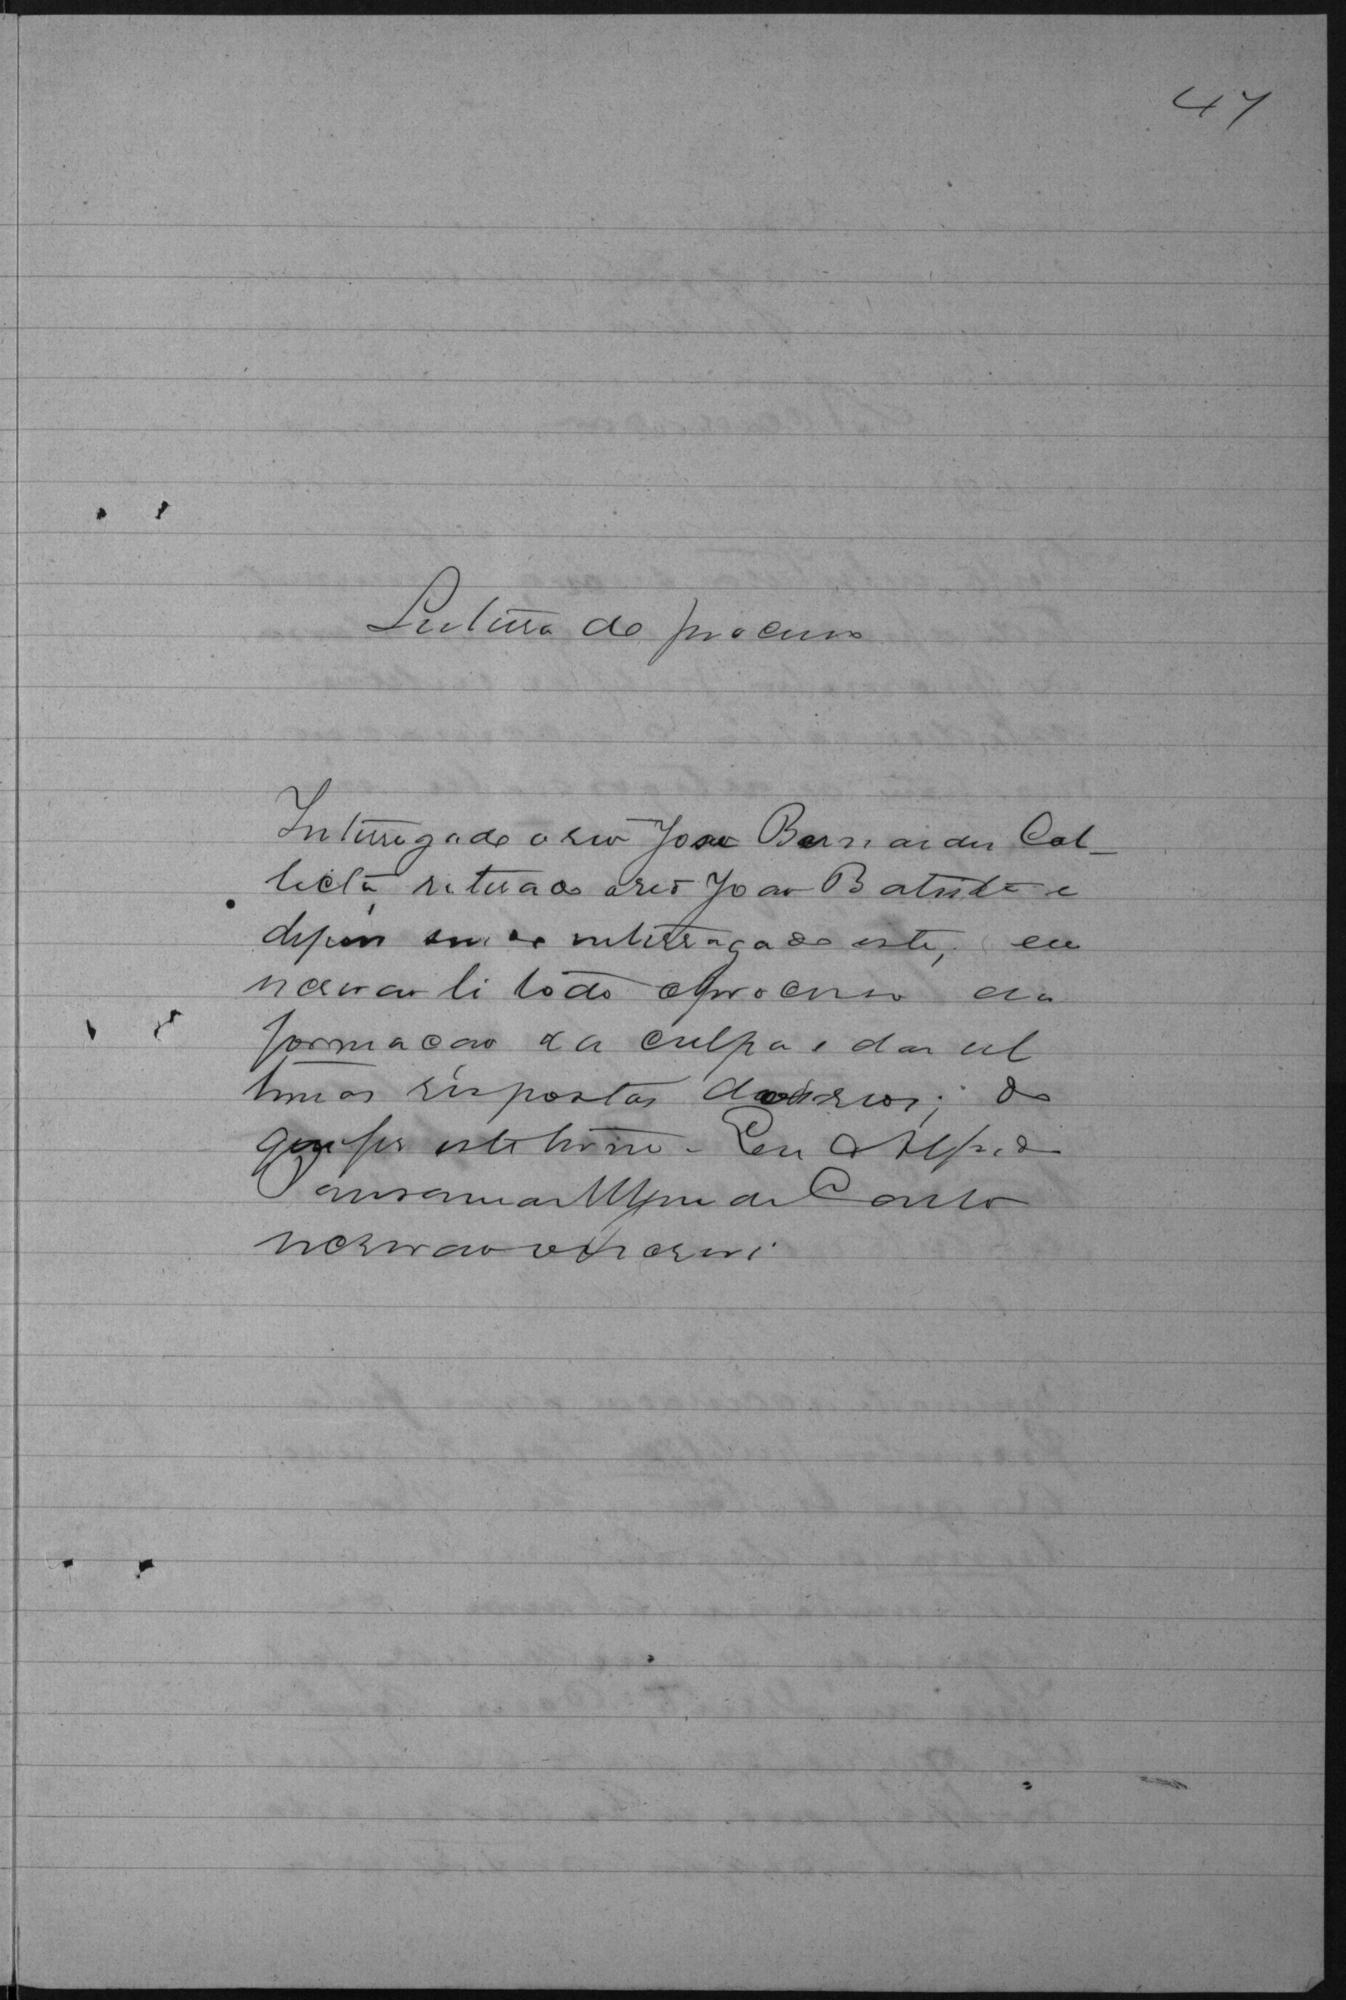 47
Leitura do processo
Interrogado o reo João Bernardes Cal-
lecta, retirado o reo João Batista e
depois sendo interrogado este, eu
escrivão li todo o processo da
formação da culpa e das ul
timas respostas dos reos; do
que fiz este termo. Eu Alfredo
de Couto
escrivão o escrevi